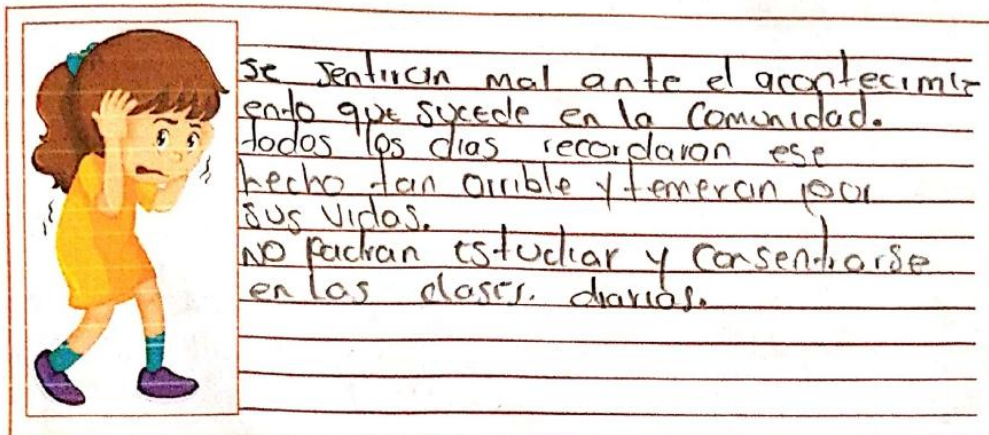 se sentiran mal ante el acontecimi
ento que sucede en la comunidad.
todos los dias recordaran ese
hecho tan orrible y temeran por
sus vidas.
NO padran estudiar y consentrarse
en las clases. diarias.